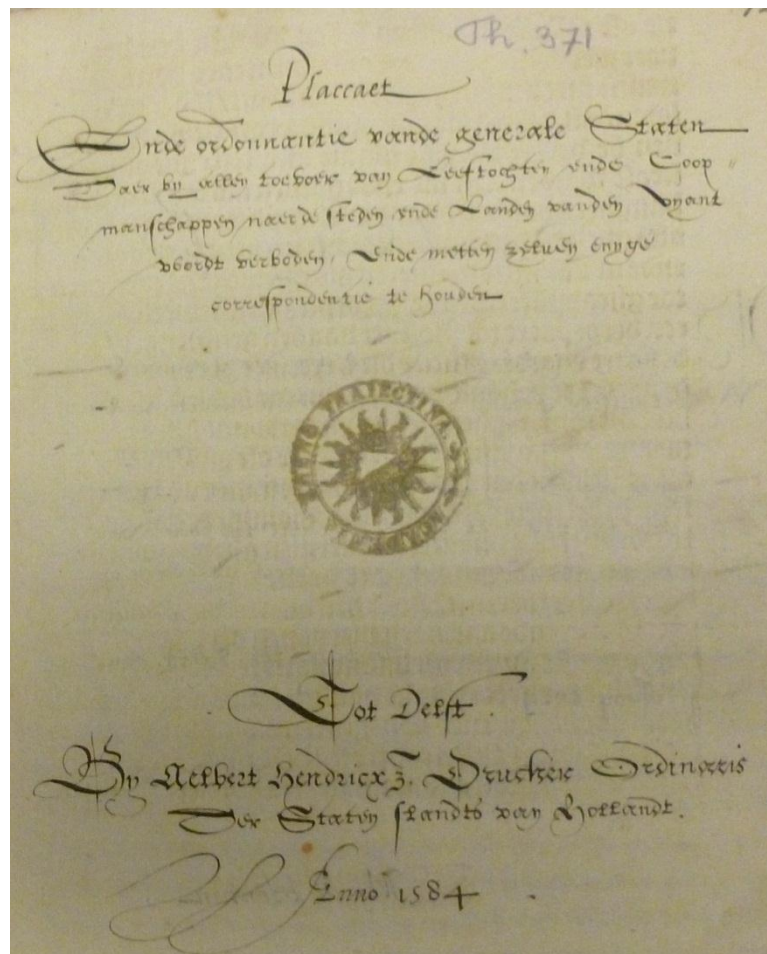 Th. 371
Placcaet
Ende ordonnantie vande generale Staten
Daer by allen toevoer van Leeftochten ende Coop
manschappen naer de steden ende Landen vanden vyant
wordt verboden, Ende metten zelven enyge
correspondentie te houden
RHENO TRAJECTINA
Tot Delft.
By Aelbert Hendricxz. Drucker Ordinaris
Der Staten slandts van Hollandt.
Anno 1584